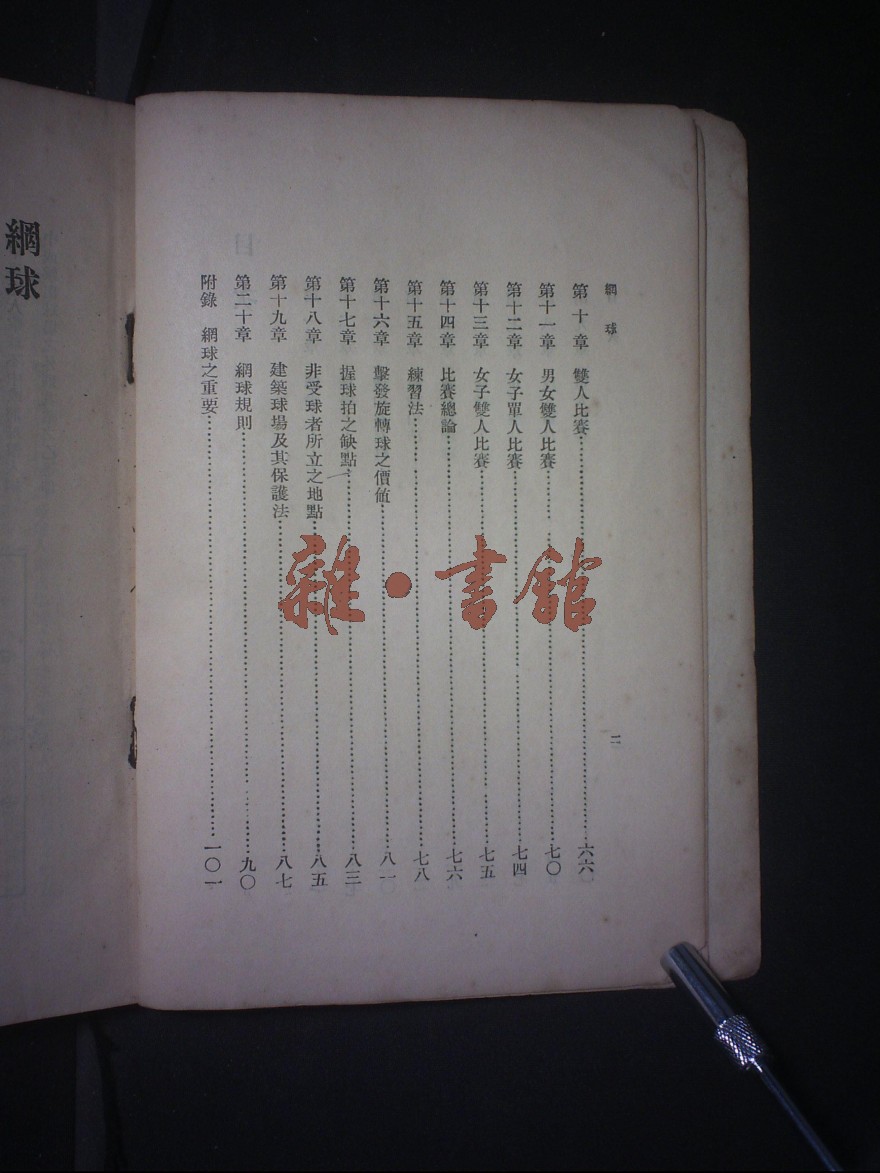 網球
二
第十章 雙人比賽……六六
第十一章 男女雙人比賽……七〇
第十二章 女子單人比賽……七四
第十三章 女子雙人比賽……七五
第十四章 比賽總論……七六
第十五章 練習法……七八
第十六章 擊發旋轉球之價値……八一
第十七章 握球拍之缺點……八三
第十八章 非受球者所立之地點……八五
第十九章 建築球場及其保護法……八七
第二十章 網球規則……九〇
附錄 網球之重要……一〇一
網球
雜·書館